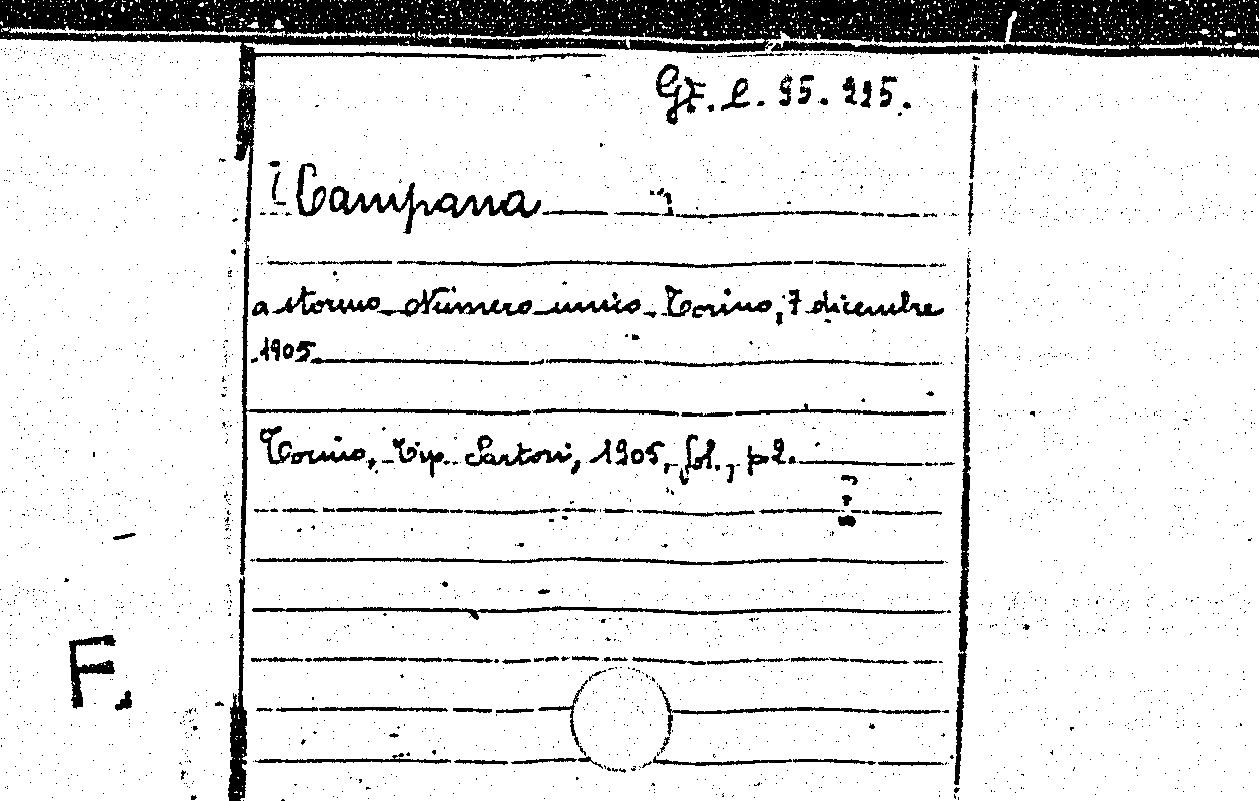 GF. C. 95. 225.
[Campana
a stormo Numero unico. Torino, 7 dicembre
1905
Torino, Tip. Sartori, 1905, fol., p 2.
F.